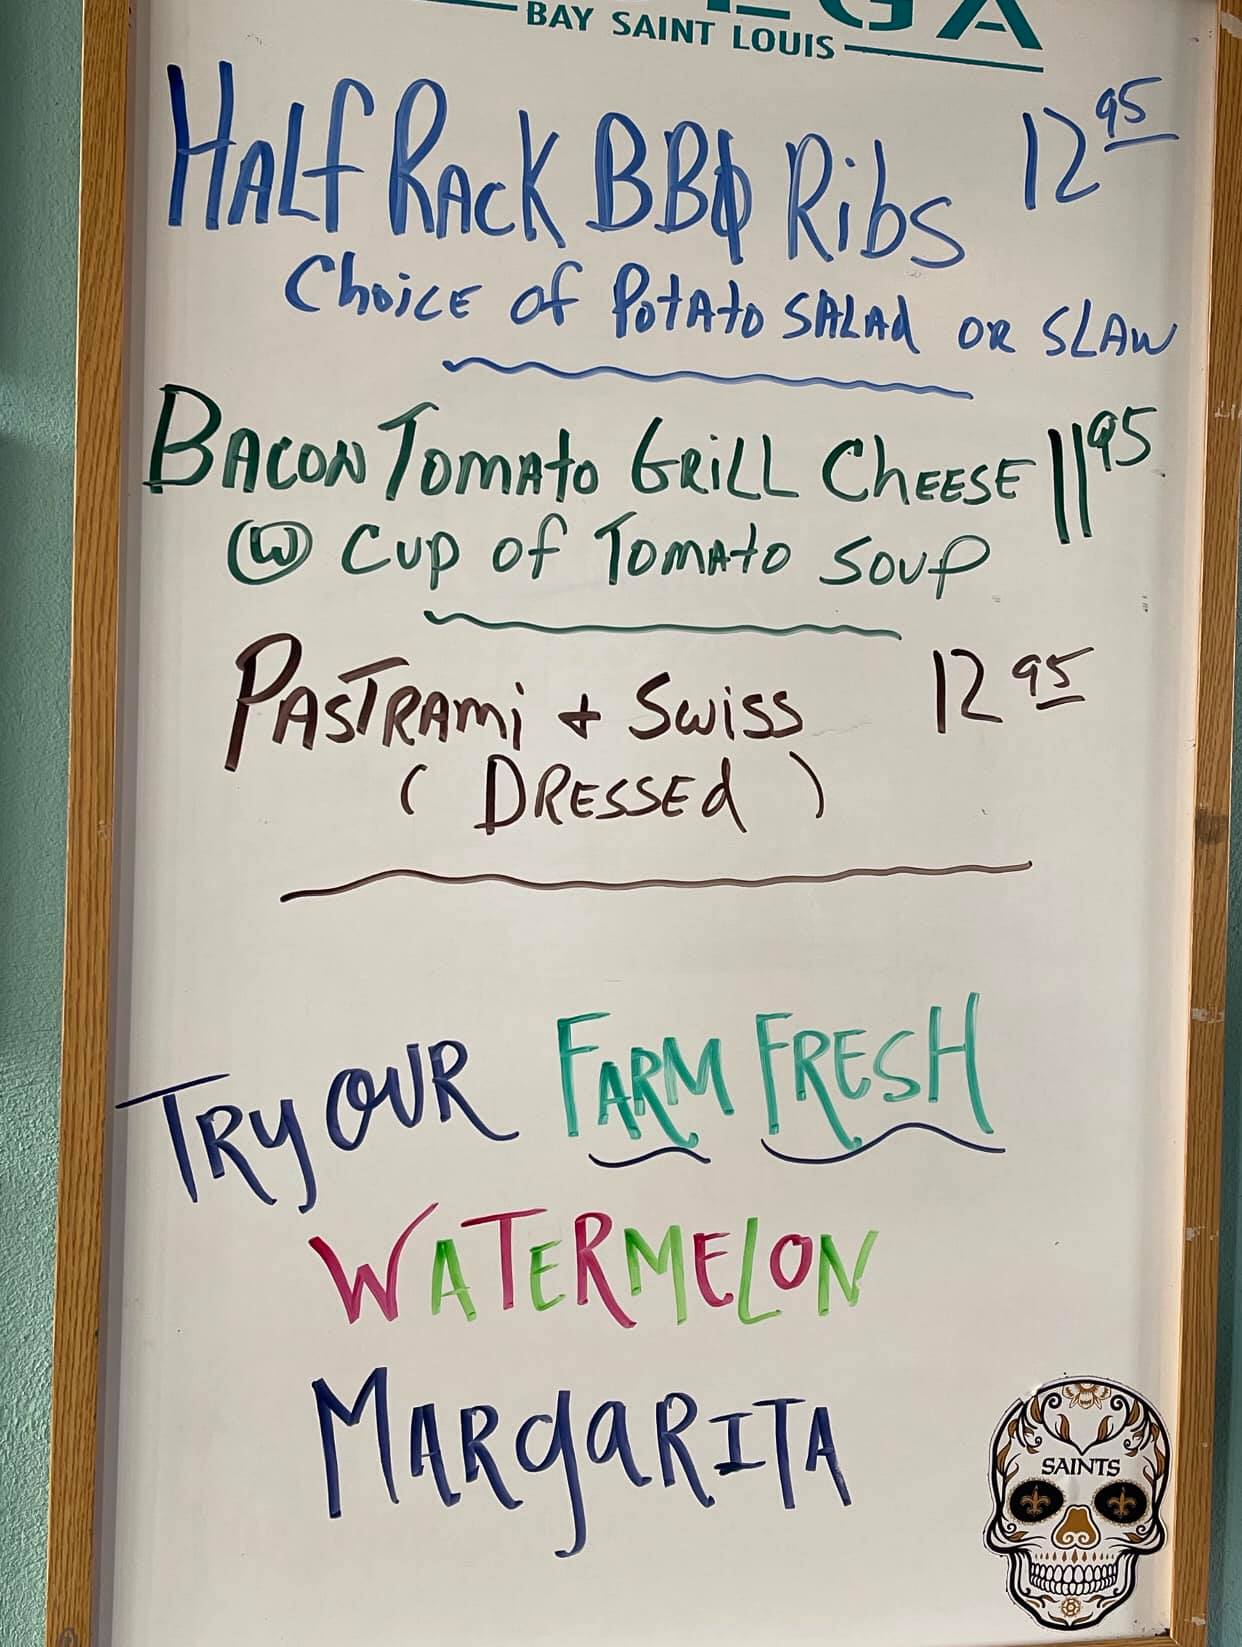 BAY SAINT LOUIS
Half Rack BBQ Ribs 12 95
Choice of Potato Salad or Slaw
Bacon Tomato Grill Cheese 11 95
W Cup of Tomato Soup
Pastrami + Swiss 12 95
( Dressed )
Try our Farm Fresh
Watermelon
Margarita
SAINTS